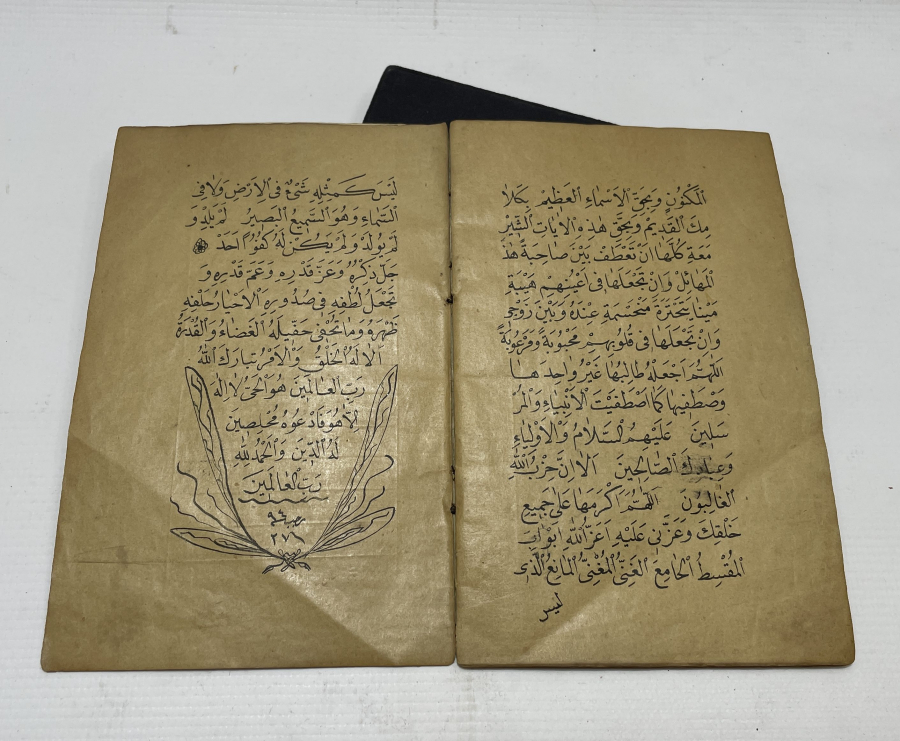 المكنون وبحق الاسماء العظيم بكلا
مك القديم وبحق هذه الايات الشر
معة كلها ان تعطف بين صاحبة هذ
الهيائل وان تجعلها في اعينهم هيبة
عنده وبين زوجي
وان تجعلها في قلوبهم محبوبة ومرعوبة
اللهم اجعله طالبها غير واحد هـا
وصطفيها كما اصطفيت الانبياء والمر
سلين عليهم السلام والاولياء
وعبادك الصالحين الا ان حزب الله
الغالبون اللهم اكرمها على جميع
خلقك وعزني عليه اعز الله ابواب
المقسط الجامع الغني المغني المانع الذي
ليس
ليس كمثله شئ في الارض ولا في
السماء وهو السميع البصير لم يلد و
لم يولد ولم يكن له كفوا احد
جل ذكره وعز قدره وعم قدره و
تجعل لطفه في صدوره الاخيار خلفه
ظهره وما تخفى القضاء والقدرة
الا له الخلق والامر تبارك الله
رب العالمين هو الحي لا اله
الا هو فادعوه مخلصين
له الدين والحمد لله
رب العالمين